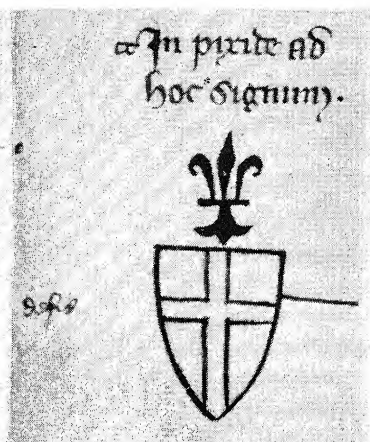 In pixide ad
hoc signum.